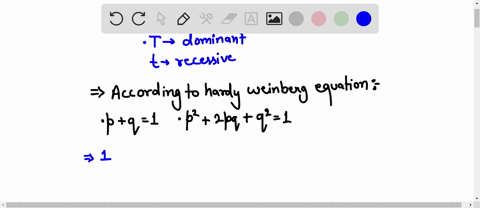 ·T→ dominant
t→ recessive
⇒ According to hardy weinberg equation:-
·p+q=1 ·p²+2pq+q²=1
⇒ 1